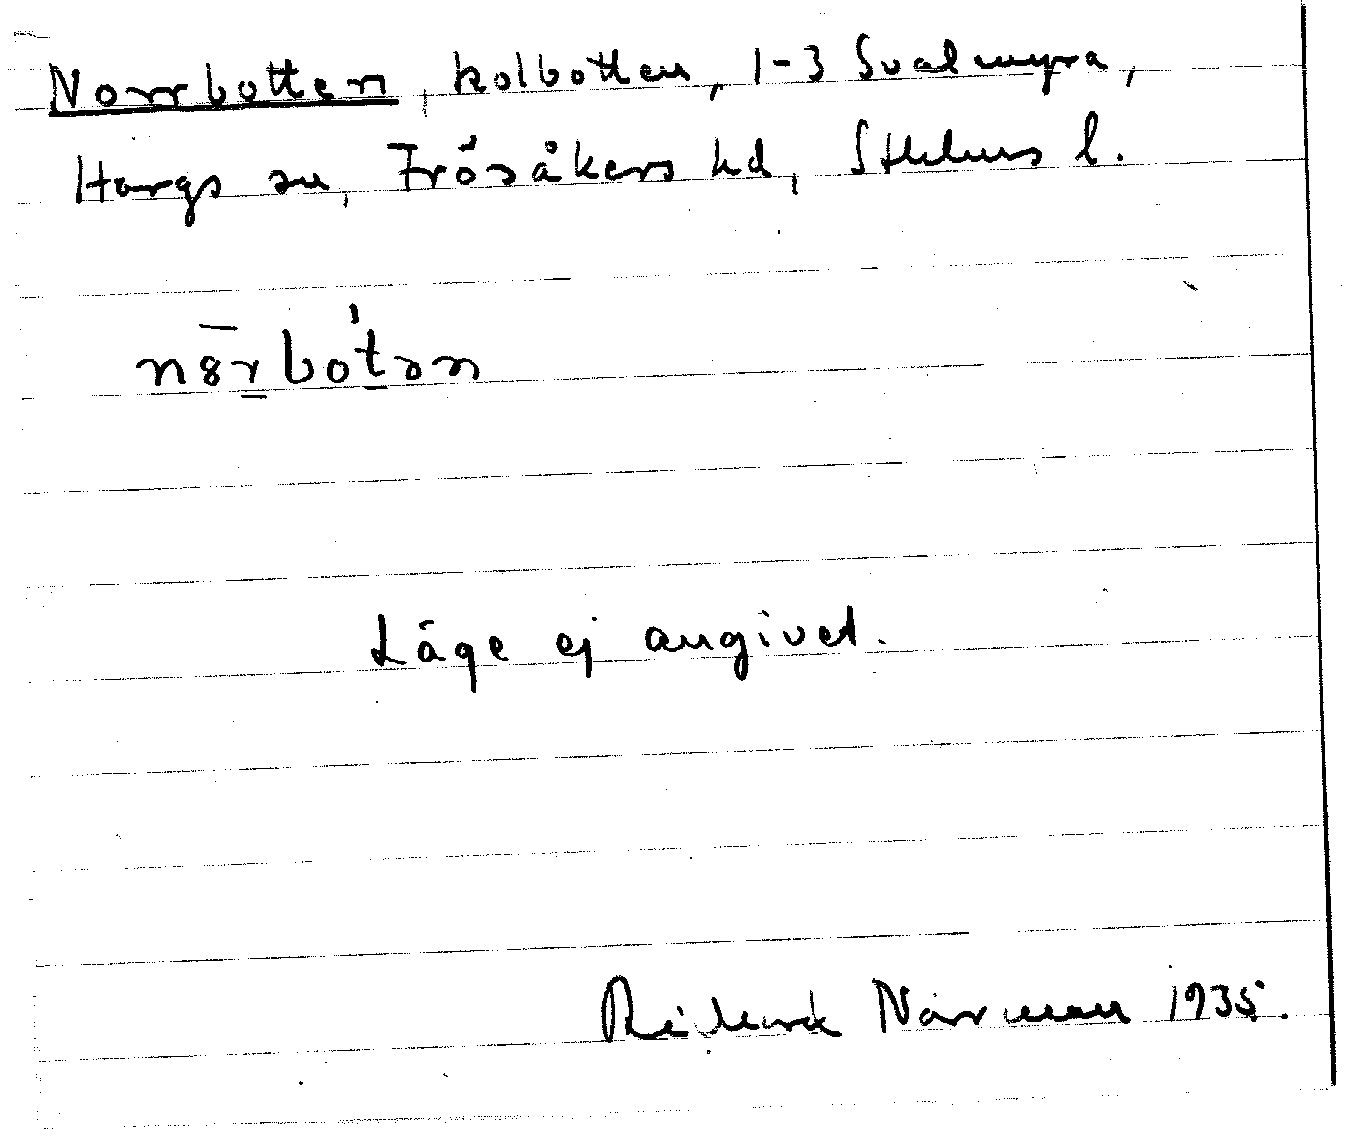 Norrbotten, kolbotten, 1-3 Svalmyra,
Hargs sn, Frösåkers hd, Sthlms l.
n8̄r̠bo't̠ən
Läge ej angivet.
Rickard Norrman 1935.